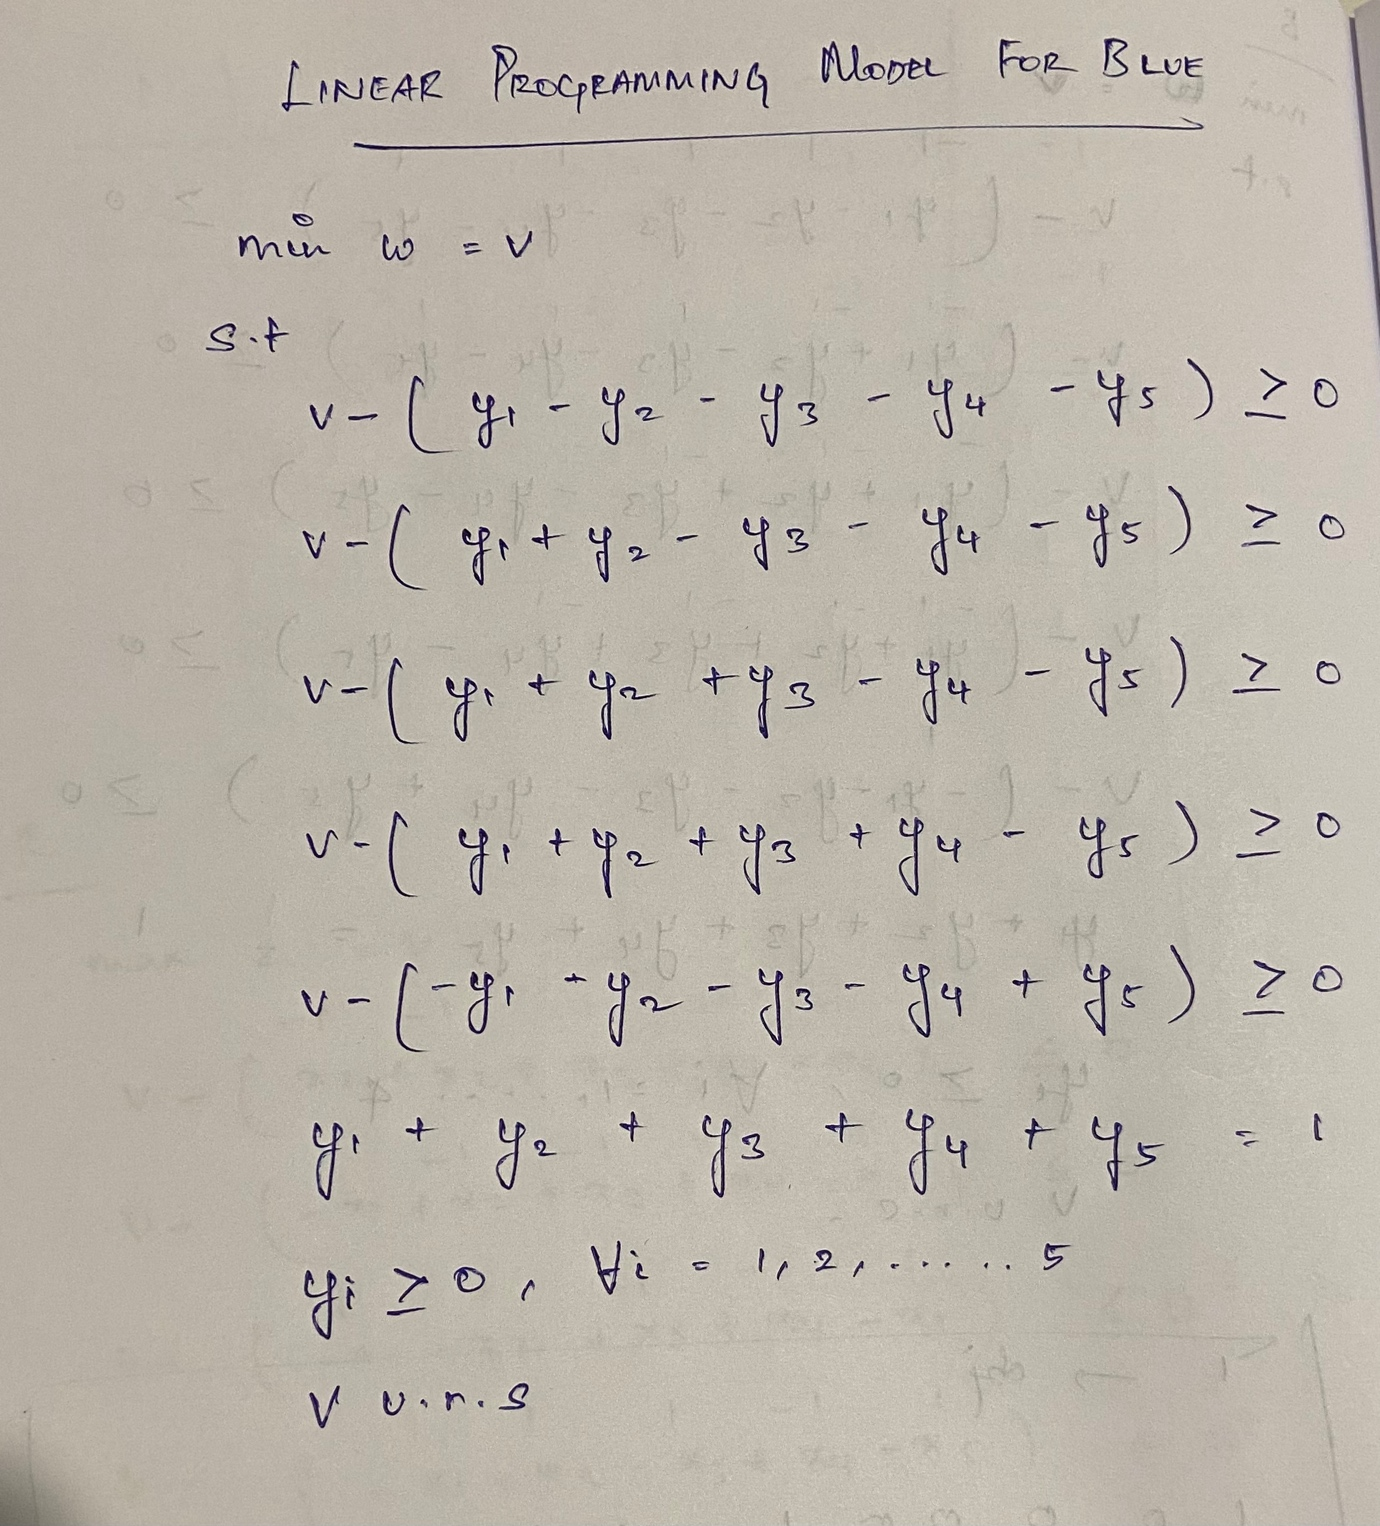 LINEAR PROGRAMMING MODEL FOR BLUE
min w = v
s.t
v - ( y1 - y2 - y3 - y4 - y5 ) ≥ 0
v - ( y1 + y2 - y3 - y4 - y5 ) ≥ 0
v - ( y1 + y2 + y3 - y4 - y5 ) ≥ 0
v - ( y1 + y2 + y3 + y4 - y5 ) ≥ 0
v - ( -y1 - y2 - y3 - y4 + y5 ) ≥ 0
y1 + y2 + y3 + y4 + y5 = 1
yi ≥ 0 , ∀i = 1, 2, ...... 5
v u.r.s